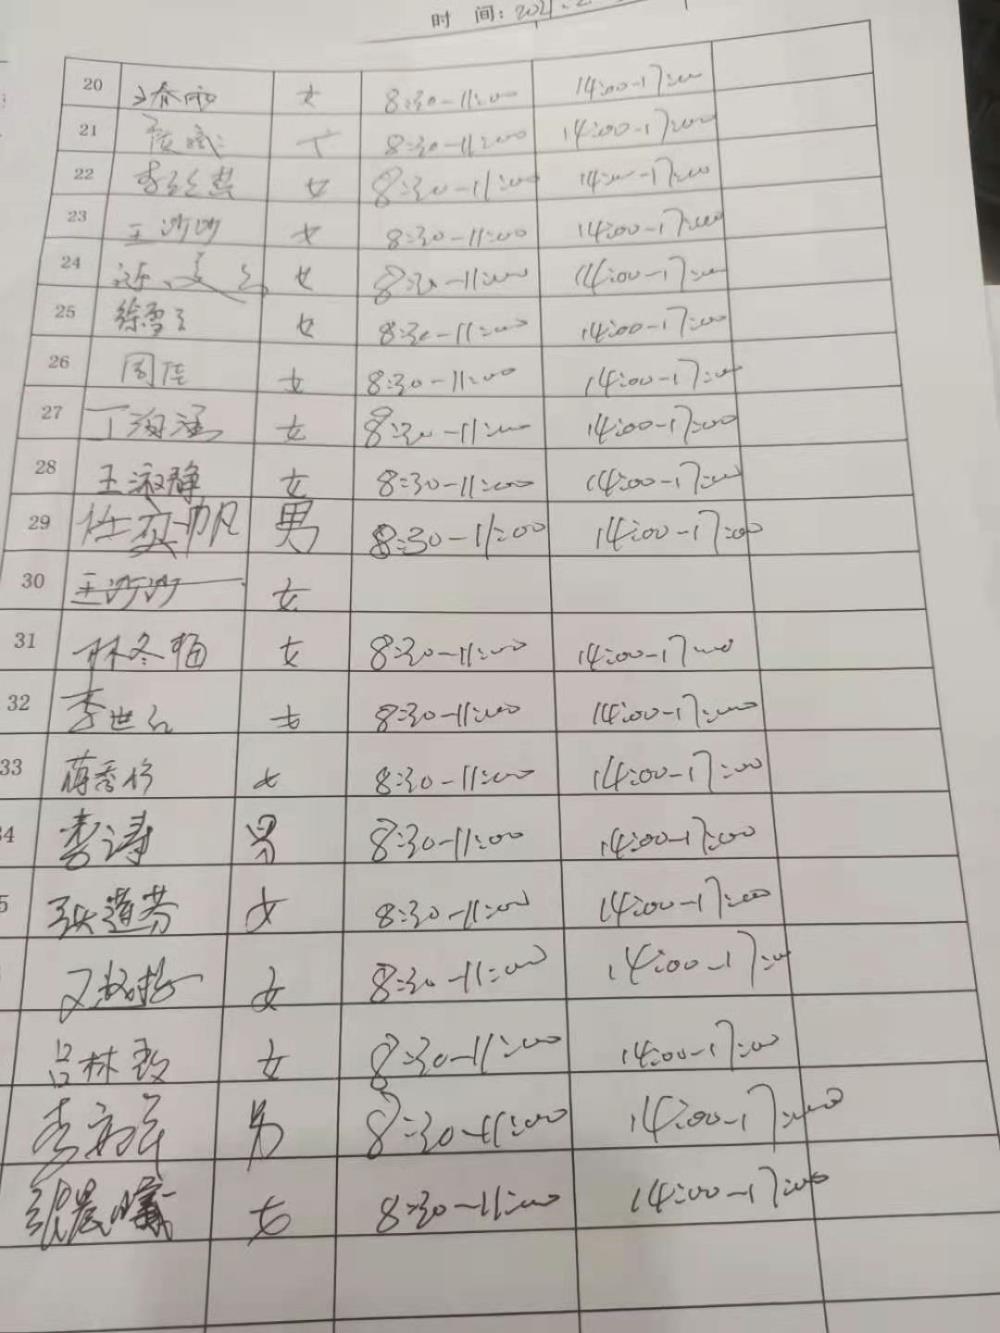 时 间: 2021.2
20 女 8:30-11:00 14:00-17:00
21 8:30-11:00 14:00-17:00
22 女 8:30-11:00 14:00-17:00
23 王沙沙 女 8:30-11:00 14:00-17:00
24 女 8:30-11:00 14:00-17:00
25 徐雪 女 8:30-11:00 14:00-17:00
26 周佳 女 8:30-11:00 14:00-17:00
27 丁海涵 女 8:30-11:00 14:00-17:00
28 王淑静 女 8:30-11:00 14:00-17:00
29 任奕帆 男 8:30-11:00 14:00-17:00
30 王沙沙 女
31 林冬梅 女 8:30-11:00 14:00-17:00
32 李世 女 8:30-11:00 14:00-17:00
33 蒋香玲 女 8:30-11:00 14:00-17:00
4 李涛 男 8:30-11:00 14:00-17:00
5 张道芬 女 8:30-11:00 14:00-17:00
女 8:30-11:00 14:00-17:00
吕林致 女 8:30-11:00 14:00-17:00
李 男 8:30-11:00 14:00-17:00
张晨曦 女 8:30-11:00 14:00-17:00